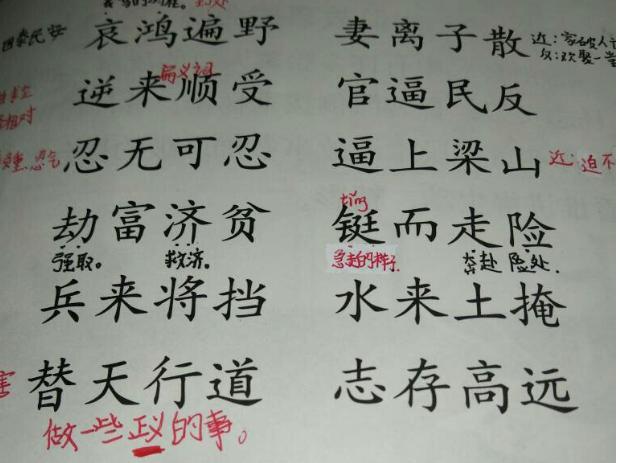 哀鸿遍野 妻离子散 近:家破人
反:欢聚一堂
褒义词
逆来顺受 官逼民反
相对
忍无可忍 逼上梁山 近:迫不
忍气
tǐng
劫富济贫 铤而走险
强取。 救济。 急走的样子 奔赴 险处.
兵来将挡 水来土掩
害 替天行道 志存高远
做一些正义的事。